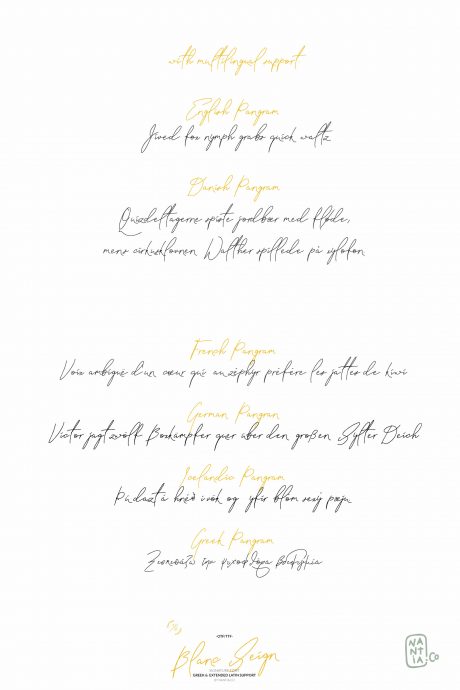 with multilingual support
English Pangram
Jived fox nymph grabs quick waltz
Danish Pangram
Quizdeltagerne spiste jordbær med fløde,
mens cirkusklovnen Walther spillede på xylofon
French Pangram
Voix ambiguë d'un cœur qui au zéphyr préfère les jattes de kiwi
German Pangram
Victor jagt zwölf Boxkämpfer quer über den großen Sylter Deich
Icelandic Pangram
á og blóm
Greek Pangram
Ξεσκεπάζω την ψυχοφθόρα βδελυγμία
•OTF/TTF•
Blanc Seign
GREEK & EXTENDED LATIN SUPPORT
NANTIA.co